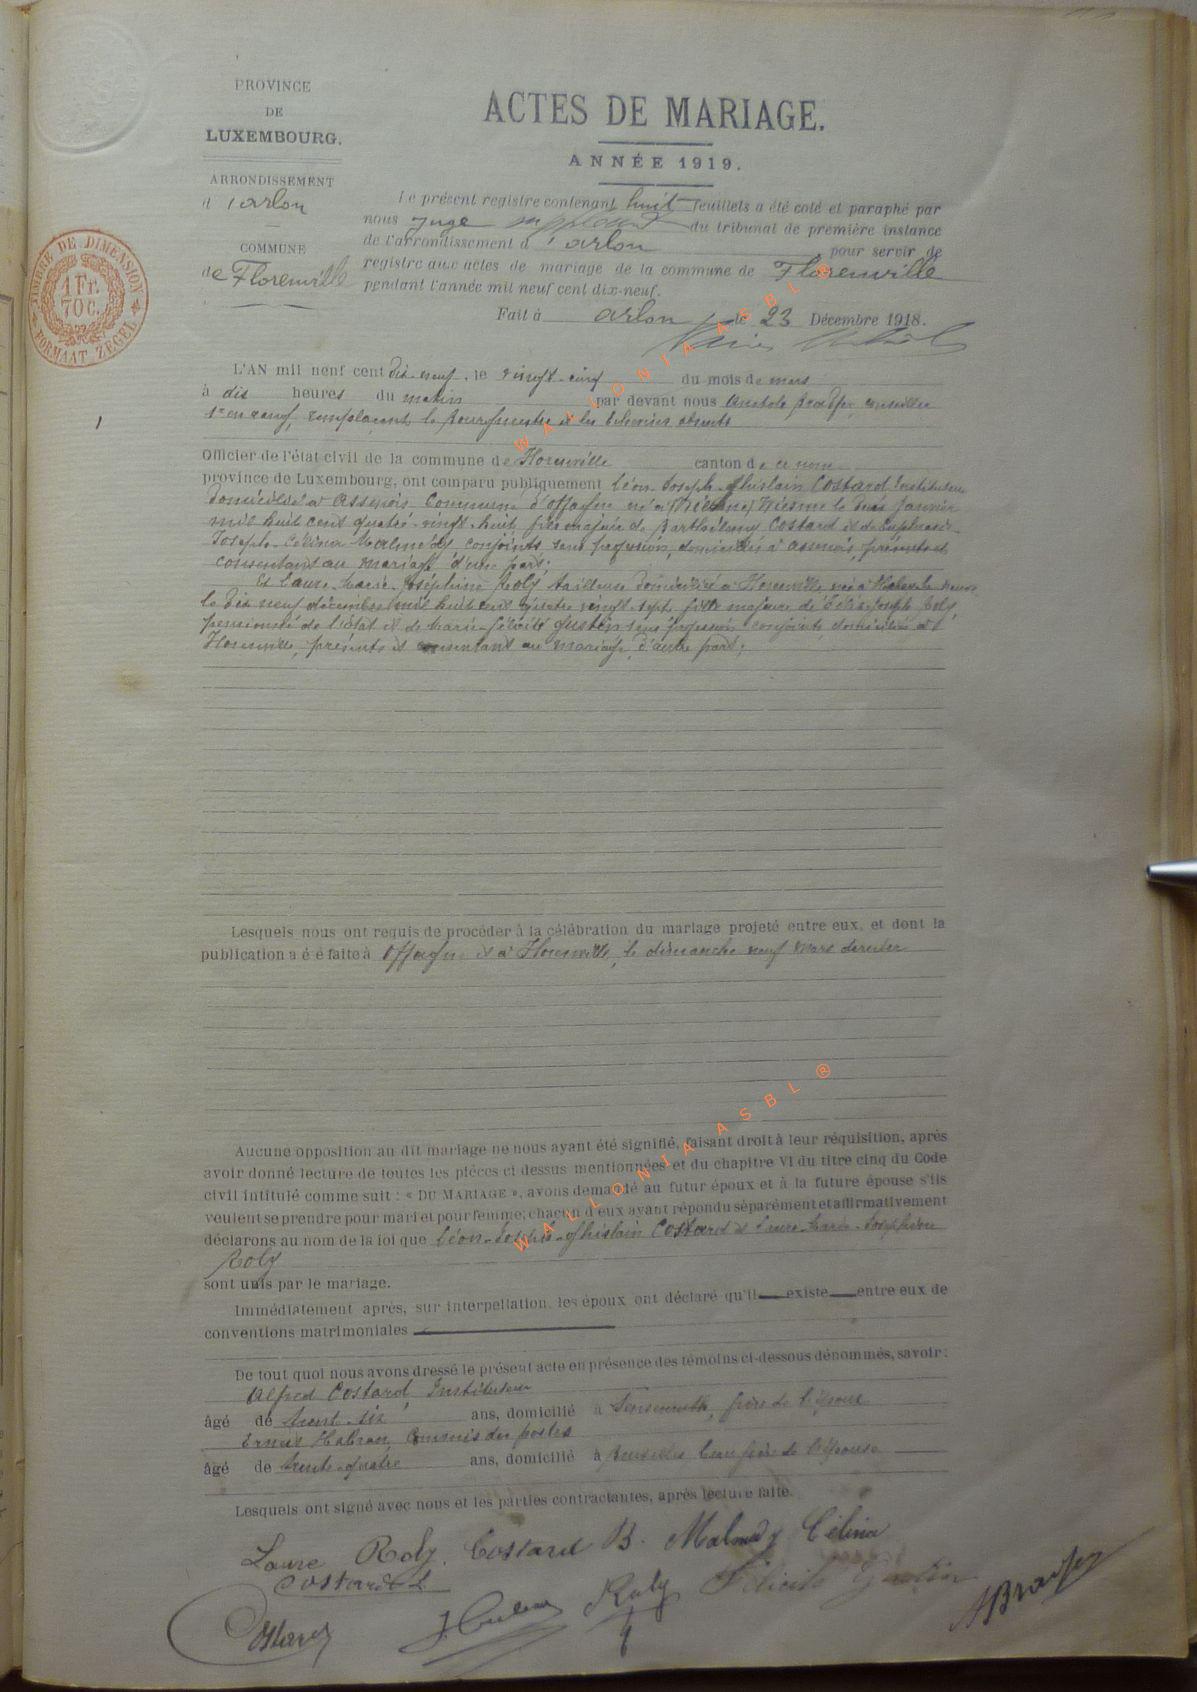 PROVINCE
DE
LUXEMBOURG.
ARRONDISSEMENT
d'arlon
COMMUNE
de Florenville
TIMBRE DE DIMENSION
1 Fr.
70 C.
FORMAAT ZEGEL
ACTES DE MARIAGE.
ANNÉE 1919.
Le présent registre contenant huit feuillets a été coté et paraphé par
nous Juge suppléant du tribunal de première instance
de l'arrondissement d'arlon pour servir de
registre aux actes de mariage de la commune de Florenville
pendant l'année mil neuf cent dix-neuf.
Fait à arlon, le 23 Décembre 1918.
1
L'AN mil neuf cent dix-neuf, le vingt-cinq du mois de mars
à dix heures du matin par devant nous Anatole Bradfer, conseiller
1er en rang, remplaçant le Bourgmestre et les Echevins absents
Officier de l'état civil de la commune de Florenville canton de ce nom
province de Luxembourg, ont comparu publiquement Léon-Joseph-Ghislain Costard Instituteur
domicilié à Assenois Commune d'Offagne né à Niesme le deux Janvier
mil huit cent quatre-vingt-huit, fils majeur de Barthélemy Costard et de Euphrasie-
Joseph-Célina Malmédy conjoints, sans profession, domiciliés à Assenois, présents et
consentant au mariage d'une part;
Et Laure-Marie-Joséphine Roly tailleuse domiciliée à Florenville née à
le dix-neuf décembre mil huit cent quatre-vingt-sept, fille majeure de Joseph Roly,
pensionné de l'état et de Marie-Félicité Gustin sans profession conjoints, domiciliés à
Florenville, présents et consentant au mariage, d'autre part;
Lesquels nous ont requis de procéder à la célébration du mariage projeté entre eux, et dont la
publication a é é faite à Offagne et à Florenville, le dimanche neuf mars dernier
Aucune opposition au dit mariage ne nous ayant été signifié, faisant droit à leur réquisition, après
avoir donné lecture de toutes les pièces ci dessus mentionnées et du chapitre VI du titre cinq du Code
civil intitulé comme suit : « DU MARIAGE », avons demandé au futur époux et à la future épouse s'ils
veulent se prendre pour mari et pour femme; chacun d'eux ayant répondu séparément et affirmativement
déclarons au nom de la loi que Léon-Joseph-Ghislain Costard et Laure-Marie-Joséphine
Roly
sont unis par le mariage.
Immédiatement après, sur interpellation, les époux ont déclaré qu'il existe entre eux de
conventions matrimoniales
De tout quoi nous avons dressé le présent acte en présence des témoins ci-dessous dénommés, savoir:
Alfred Costard, Instituteur
âgé de trente-six ans, domicilié à Sensenruth, frère de l'époux
Ernest Habran, Commis des postes
âgé de trente-quatre ans, domicilié à Bruxelles beau-frère de l'épouse
Lesquels ont signé avec nous et les parties contractantes, après lecture faite.
Laure Roly. Costard B. Malmedy Célina
Costard L
Costard Roly Félicité Gustin ABradfer
WALLONIA ASBL ®
WALLONIA ASBL ®